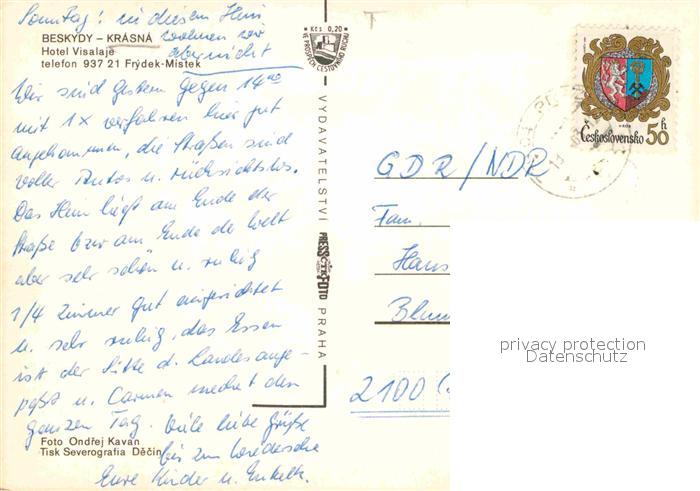 Sonntag! in diesem Heim
BESKYDY – KRÁSNÁ wohnen wir
Hotel Visalaje aber nicht
telefon 937 21 Frýdek-Místek
Wir sind gestern gegen 14⁰⁰
mit 1x verfahren hier gut
angekommen, die Straßen sind
voller Autos u. rücksichtslos.
Das Heim liegt am Ende der
Straße bzw am Ende der Welt
aber sehr schön u. ruhig
1/4 Zimmer gut eingerichtet
u. sehr ruhig, das Essen
ist der Sitte d. Landes ange-
paßt u. Carmen meckert den
ganzen Tag. Viele liebe Grüße
bis zum Wiedersehn
Eure Kinder u. Enkelk.
Foto Ondřej Kavan
Tisk Severografia Děčín
Kčs 0,20
VE PROSPĚCH CESTOVNÍHO RUCHU
VYDAVATELSTVÍ PRESSFOTO PRAHA
ČTK
Československo 50 h
GDR/NDR
Fam.
Hans
Blum
2100
privacy protection
Datenschutz